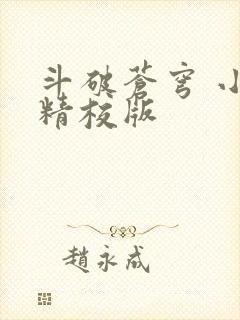 斗破蒼穹 小
精校版
趙永成